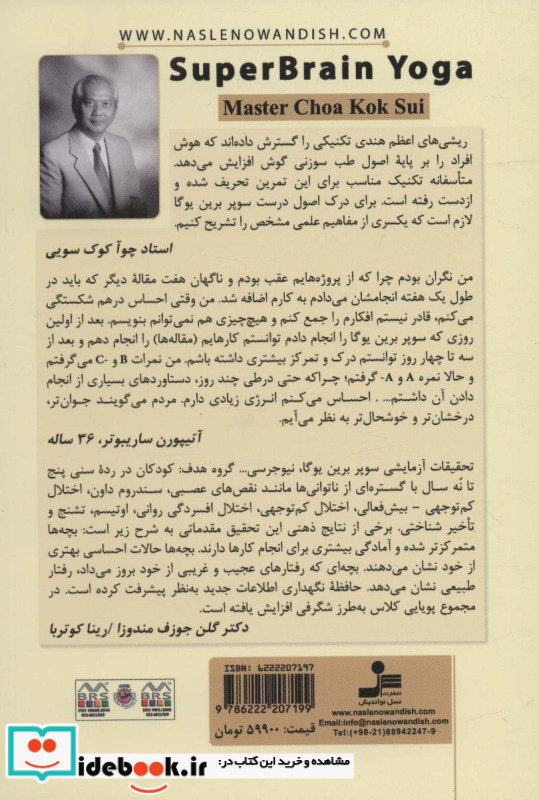 WWW.NASLENOWANDISH.COM
SuperBrain Yoga
Master Choa Kok Sui
ریشی‌های اعظم هندی تکنیکی را گسترش داده‌اند که هوش
افراد را بر پایهٔ اصول طب سوزنی گوش افزایش می‌دهد.
متأسفانه تکنیک مناسب برای این تمرین تحریف شده و
ازدست رفته است. برای درک اصول درست سوپر برین یوگا
لازم است که یکسری از مفاهیم علمی مشخص را تشریح کنیم.
استاد چوآ کوک سویی
من نگران بودم چرا که از پروژه‌هایم عقب بودم و ناگهان هفت مقالهٔ دیگر که باید در
طول یک هفته انجامشان می‌دادم به کارم اضافه شد. من وقتی احساس درهم شکستگی
می‌کنم، قادر نیستم افکارم را جمع کنم و هیچ‌چیزی هم نمی‌توانم بنویسم. بعد از اولین
روزی که سوپر برین یوگا را انجام دادم توانستم کارهایم (مقاله‌ها) را انجام دهم و بعد از
سه تا چهار روز توانستم درک و تمرکز بیشتری داشته باشم. من نمرات B و C- می‌گرفتم
و حالا نمره A و A- گرفتم؛ چراکه حتی درطی چند روز، دستاوردهای بسیاری از انجام
دادن آن داشتم... . احساس می‌کنم انرژی زیادی دارم. مردم می‌گویند جوان‌تر،
درخشان‌تر و خوشحال‌تر به نظر می‌آیم.
آتیپورن ساریبوتر، ۳۶ ساله
تحقیقات آزمایشی سوپر برین یوگا، نیوجرسی... گروه هدف: کودکان در ردهٔ سنی پنج
تا نُه سال با گستره‌ای از ناتوانی‌ها مانند نقص‌های عصبی، سندروم داون، اختلال
کم‌توجهی - بیش‌فعالی، اختلال کم‌توجهی، اختلال افسردگی روانی، اوتیسم، تشنج و
تأخیر شناختی. برخی از نتایج ذهنی این تحقیق مقدماتی به شرح زیر است: بچه‌ها
متمرکزتر شده و آمادگی بیشتری برای انجام کارها دارند. بچه‌ها حالات احساسی بهتری
از خود نشان می‌دهند. بچه‌ای که رفتارهای عجیب و غریبی از خود بروز می‌داد، رفتار
طبیعی نشان می‌دهد. حافظهٔ نگهداری اطلاعات جدید به‌نظر پیشرفت کرده است. در
مجموع پویایی کلاس به‌طرز شگرفی افزایش یافته است.
دکتر گلن جوزف مندوزا /رینا کوتربا
ISBN: 6222207197
9 786222 207199
قیمت: ۵۹۹۰۰ تومان
نسل نواندیش
www.naslenowandish.com
Email:info@naslenowandish.com
Tel:(+98-21)88942247-9
BRS
BRS
مشاهده و خرید این کتاب در:
idebook.ir